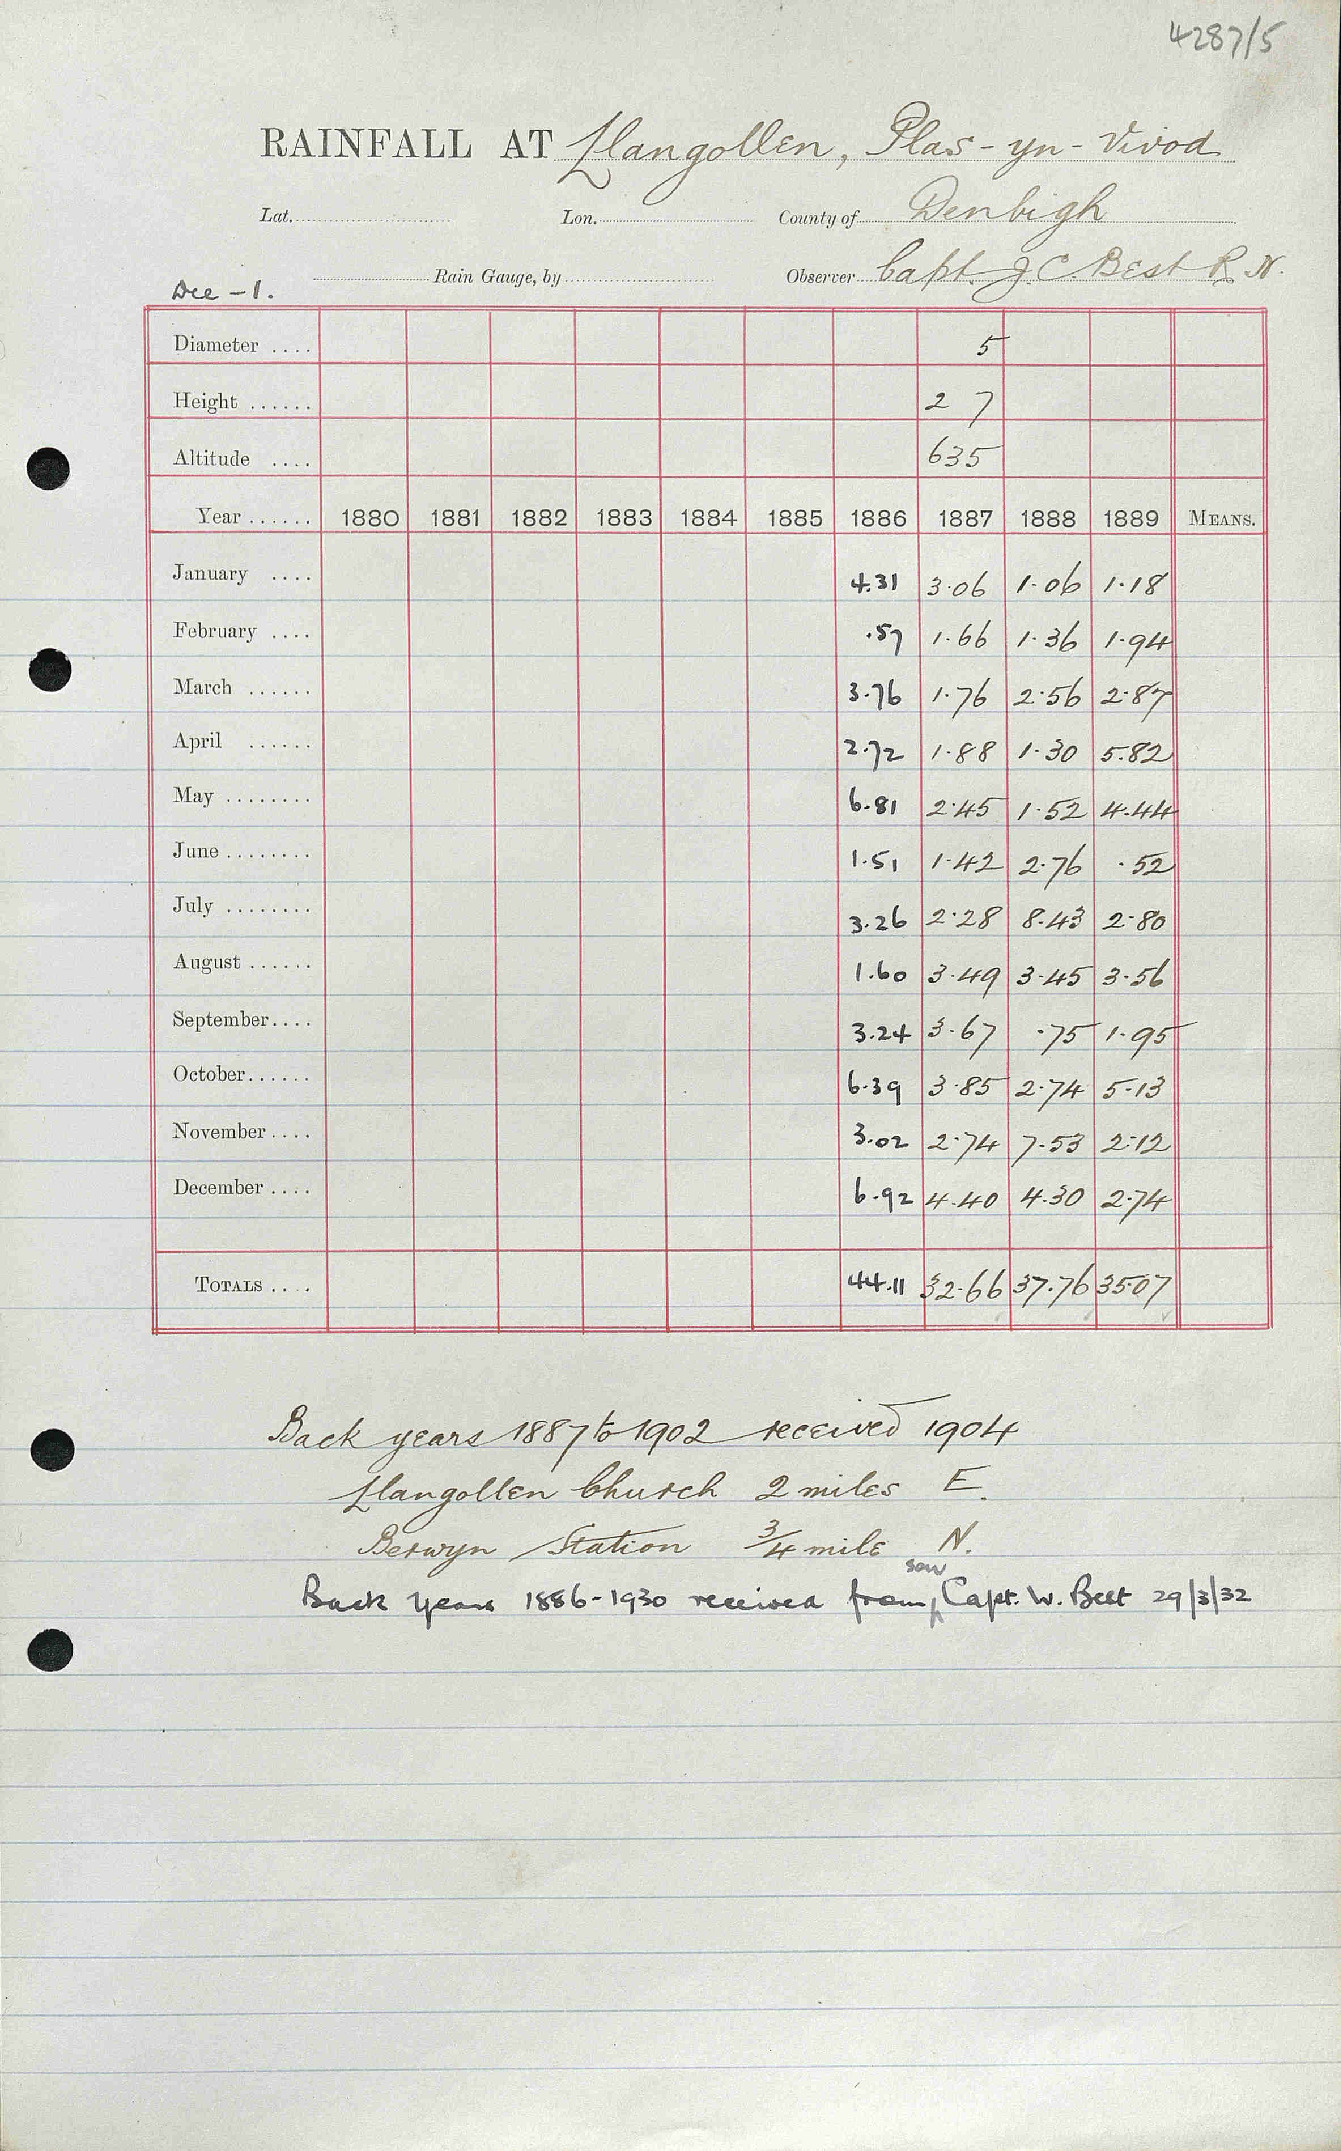 4287/5
RAINFALL AT Llangollen, Plas-yn-Vivod
Lat. Lon. County of Denbigh
Rain Gauge, by Observer Capt. J. C. Best R. N.
Dee -1.
Diameter .... 5
Height ...... 2 7
Altitude .... 635
Year ...... 1880 1881 1882 1883 1884 1885 1886 1887 1888 1889 MEANS.
January .... 4.31 3.06 1.06 1.18
February .... .57 1.66 1.36 1.94
March ...... 3.76 1.76 2.56 2.87
April ...... 2.72 1.88 1.30 5.82
May ........ 6.81 2.45 1.52 4.44
June ........ 1.51 1.42 2.76 .52
July ........ 3.26 2.28 8.43 2.80
August ...... 1.60 3.49 3.45 3.56
September.... 3.24 3.67 .75 1.95
October...... 6.39 3.85 2.74 5.13
November.... 3.02 2.74 7.53 2.12
December.... 6.92 4.40 4.30 2.74
TOTALS .... 44.11 32.66 37.76 35.07
Back years 1887 to 1902 received 1904
Llangollen Church 2 miles E.
Berwyn Station 3/4 mile N.
son
Back years 1886-1930 received from Capt. W. Best 29/3/32